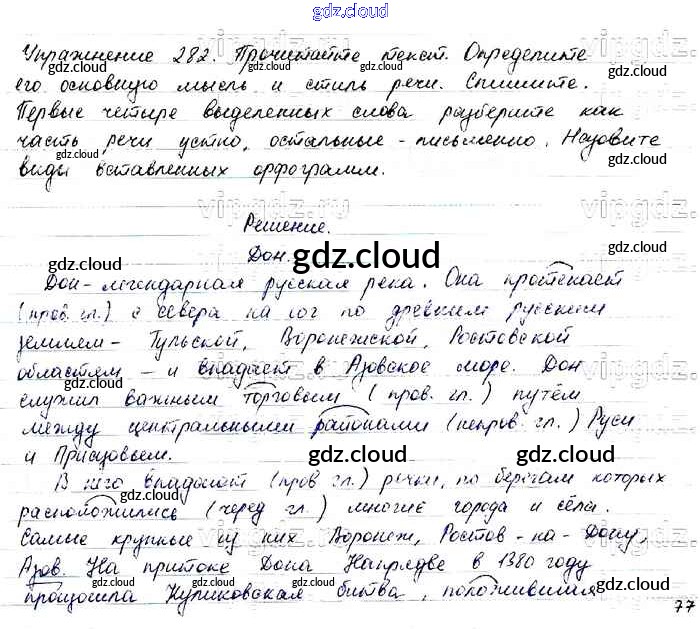 gdz.cloud
Упражнение 282. Прочитайте текст. Определите
его основную мысль и стиль речи. Спишите.
Первые четыре выделенных слова разберите как
часть речи устно, остальные - письменно. Назовите
виды вставленных орфограмм.
Решение.
Дон.
Дон - легендарная русская река. Она протекает
(пров. гл.) с севера на юг по древним русским
землям - Тульской, Воронежской, Ростовской
областям - и впадает в Азовское море. Дон
служил важным торговым (пров. гл.) путём
между центральными районами (непров. гл.) Руси
и Приазовьем.
В него впадают (пров гл.) речки, по берегам которых
расположились (черед гл.) многие города и сёла.
Самые крупные из них Воронеж, Ростов - на - Дону,
Азов. На притоке Дона Непрядве в 1380 году
произошла Куликовская битва, положившая
77